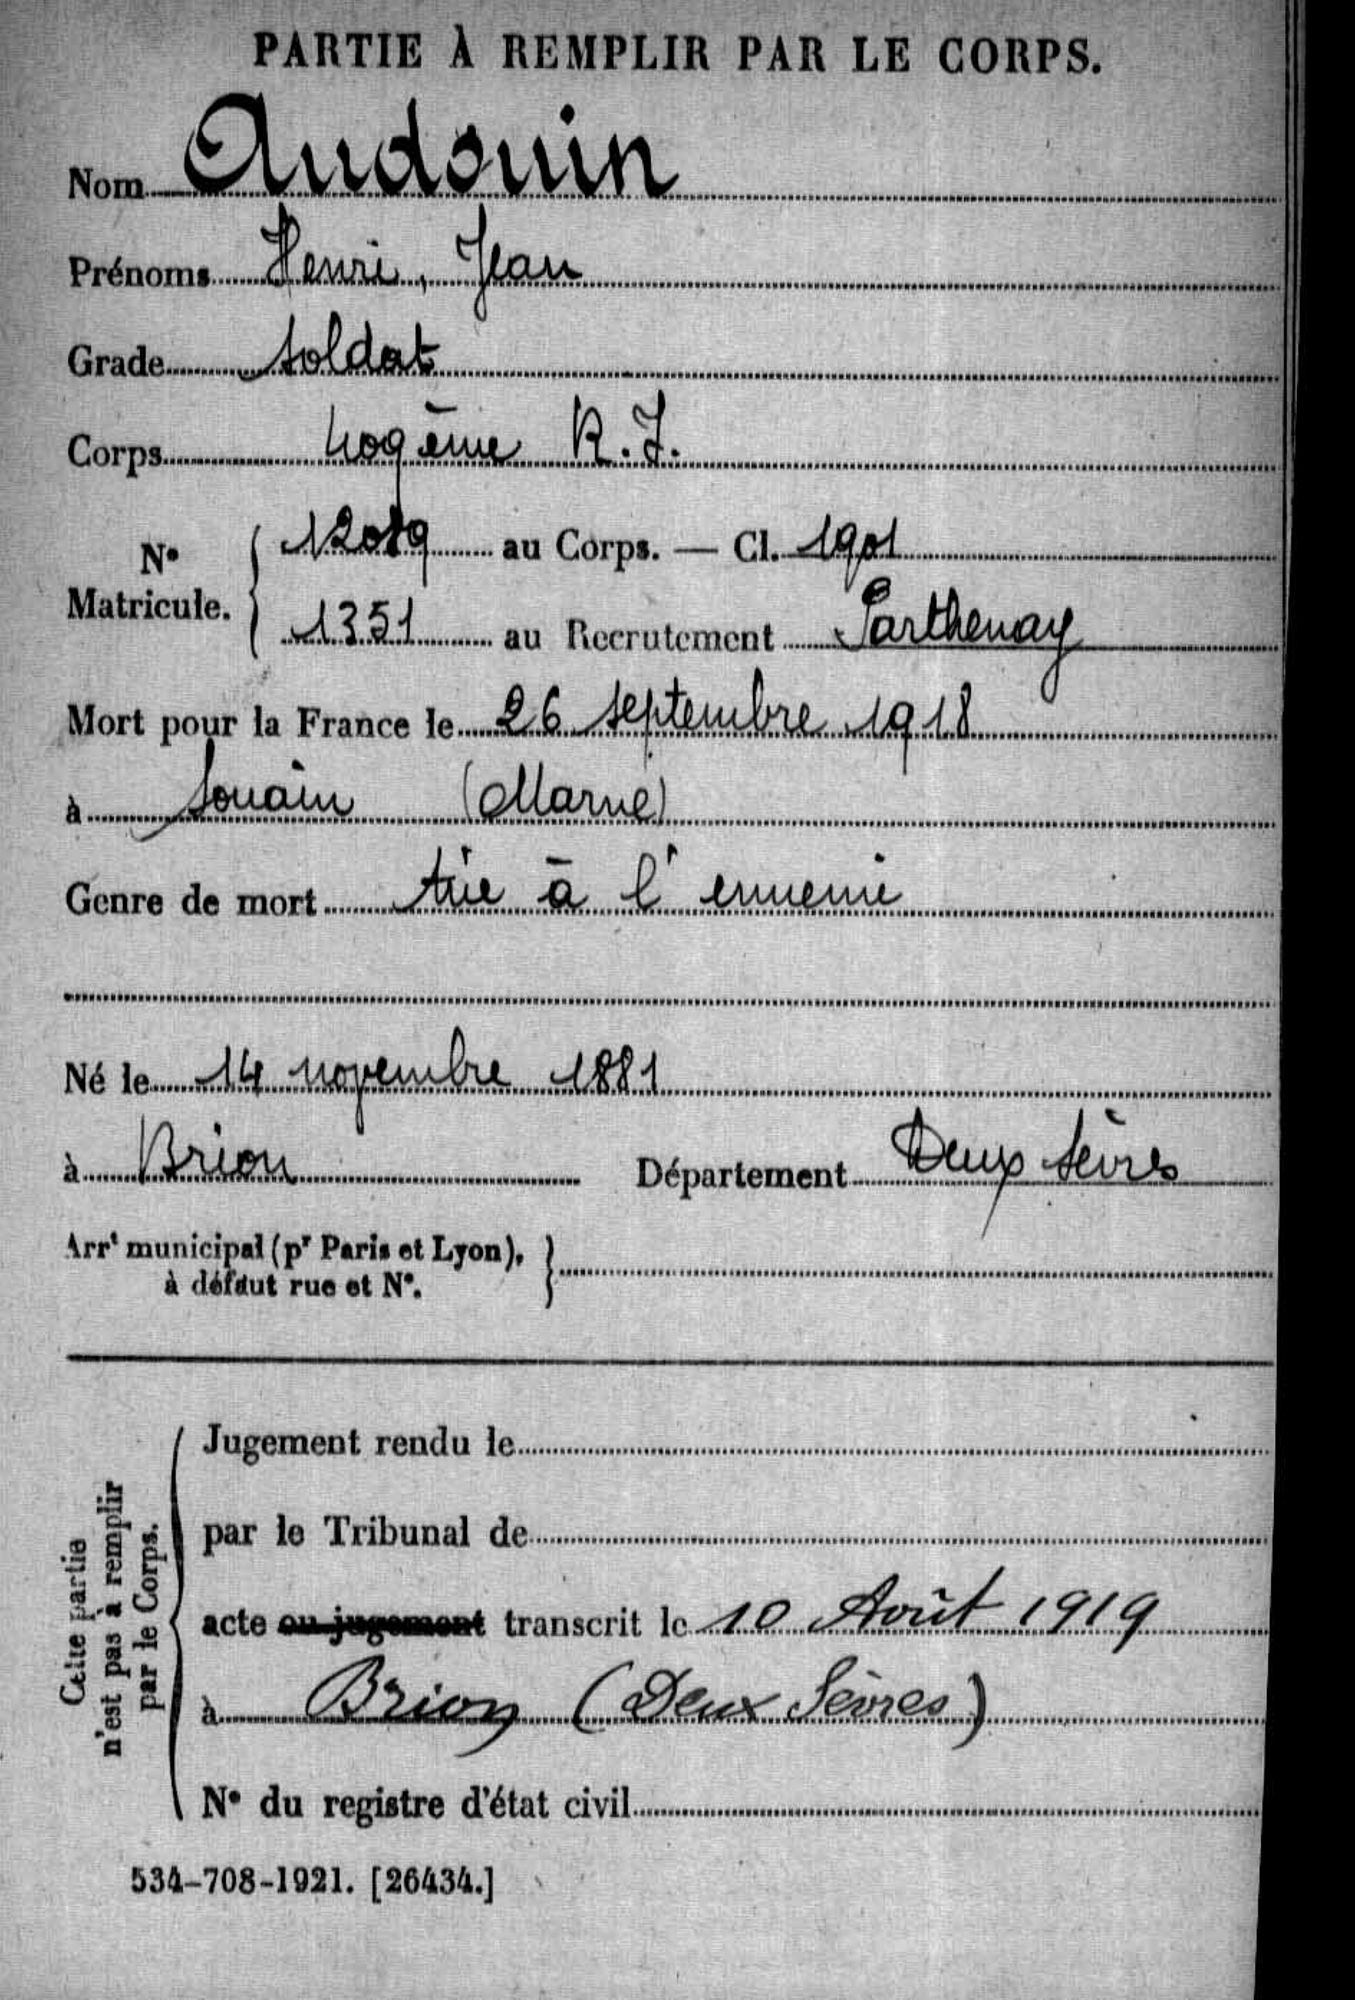 PARTIE À REMPLIR PAR LE CORPS.
Nom Audouin
Prénoms Henri, Jean
Grade soldat
Corps 409ème R.I.
N° Matricule. { 12089 au Corps. — Cl. 1901
1351 au Recrutement Parthenay
Mort pour la France le 26 septembre 1918
à Souain (Marne)
Genre de mort tué à l'ennemi
Né le 14 novembre 1881
à Brion Département Deux Sèvres
Arrt municipal (pr Paris et Lyon), }
à défaut rue et N°.
Cette partie
n'est pas à remplir
par le Corps.
Jugement rendu le
par le Tribunal de
acte ou jugement transcrit le 10 Août 1919
à Brion (Deux Sèvres)
N° du registre d'état civil
534-708-1921. [26434.]